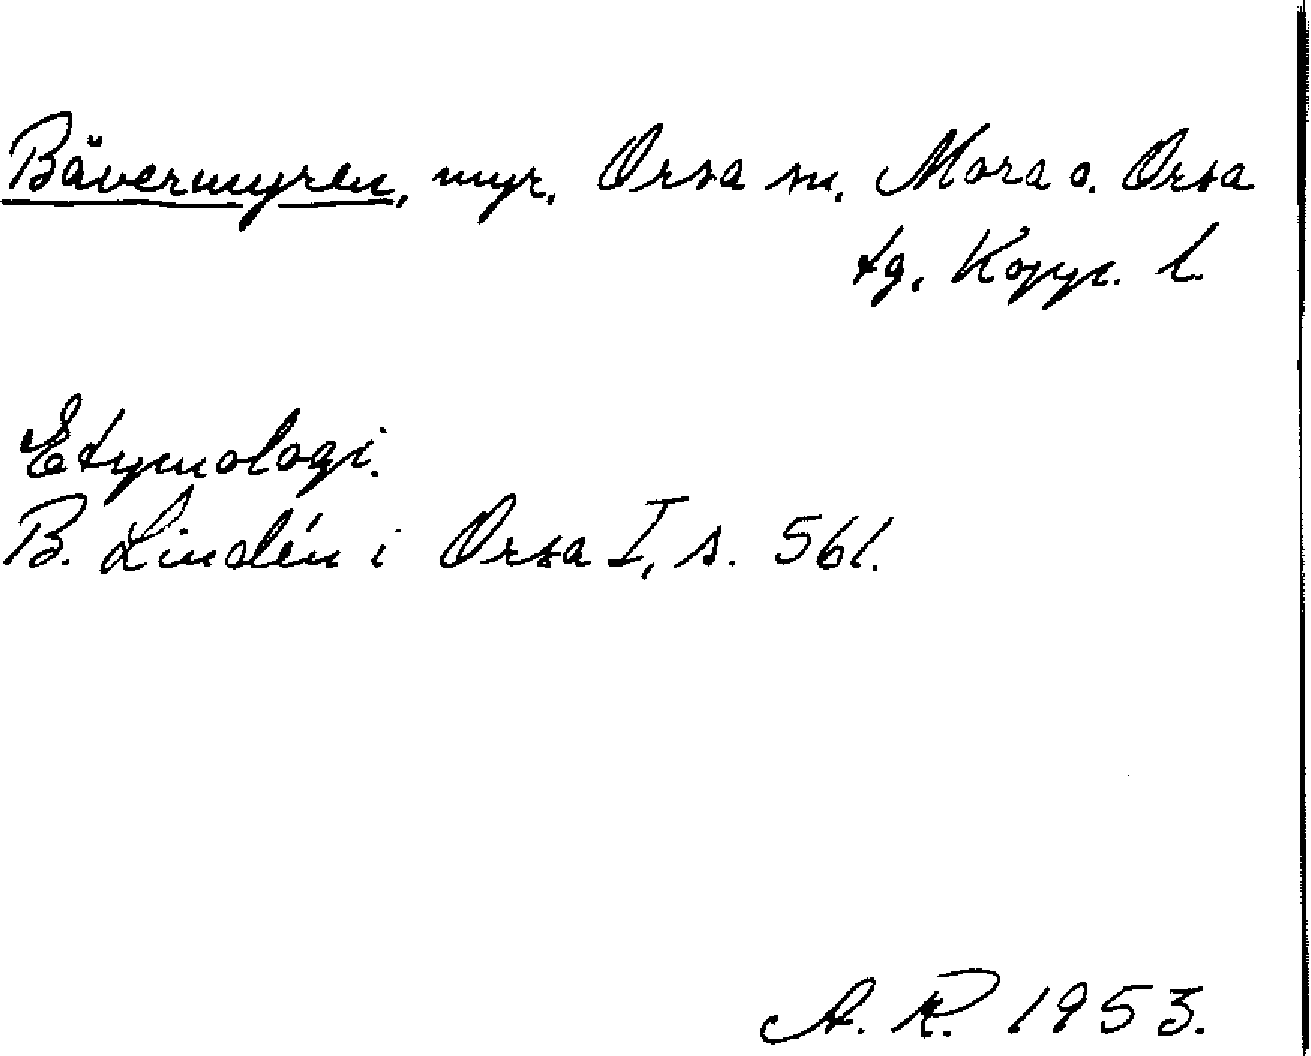 Bävermyren, myr, Orsa sn, Mora o. Orsa
tg, Koppr. l.
Etymologi.
B. Lindén i Orsa I, s. 561.
A. R. 1953.